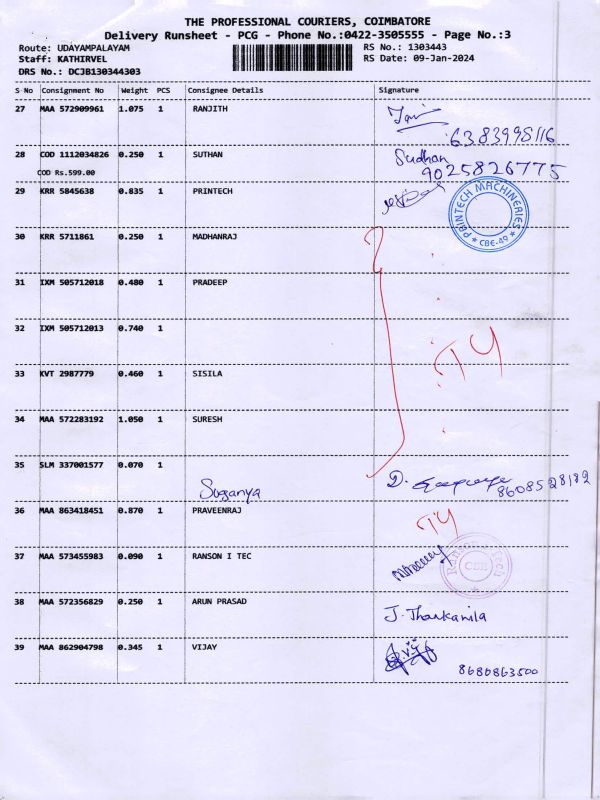 THE PROFESSIONAL COURIERS, COIMBATORE
Delivery Runsheet - PCG - Phone No.:0422-3505555 - Page No.:3
Route: UDAYAMPALAYAM
Staff: KATHIRVEL
DRS No.: DCJB130344303
RS No.: 1303443
RS Date: 09-Jan-2024
S No Consignment No Weight PCS Consignee Details Signature
27 MAA 572909961 1.075 1 RANJITH
6383998116
28 COD 1112034826 0.250 1 SUTHAN Sudhan
COD Rs.599.00 9025826775
29 KRR 5845638 0.835 1 PRINTECH
PRINTECH MACHINERIES
* CBE-49 *
30 KRR 5711861 0.250 1 MADHANRAJ
31 IXM 505712018 0.480 1 PRADEEP
32 IXM 505712013 0.740 1
33 KVT 2987779 0.460 1 SISILA
34 MAA 572283192 1.050 1 SURESH
35 SLM 337001577 0.070 1
Suganya D. 8608528182
36 MAA 863418451 0.870 1 PRAVEENRAJ
37 MAA 573455983 0.090 1 RANSON I TEC
38 MAA 572356829 0.250 1 ARUN PRASAD
J. Thankamila
39 MAA 862904798 0.345 1 VIJAY
8680863500